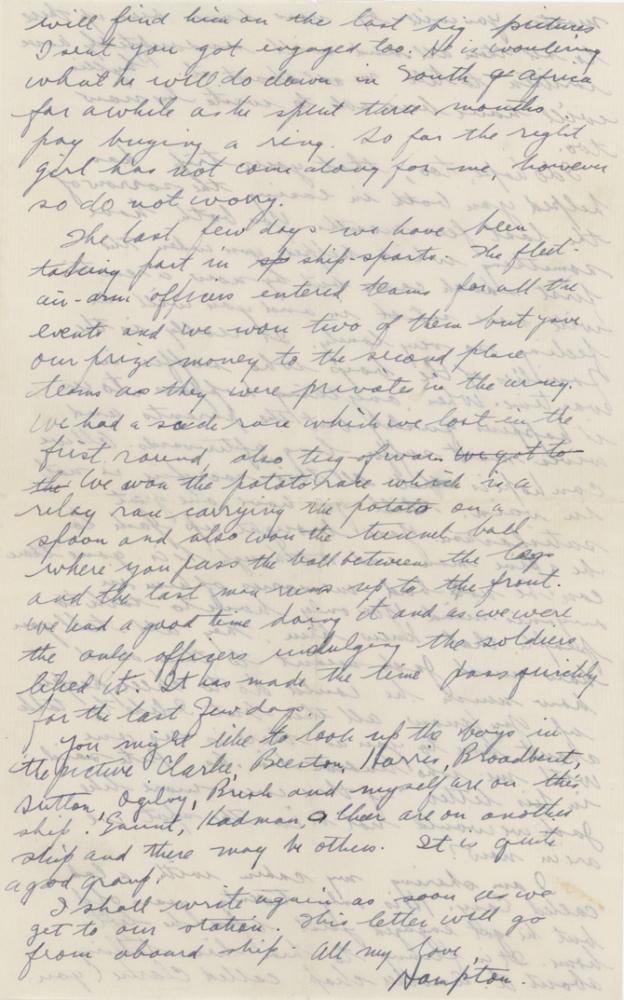 will find him on the last big pictures
I sent you got engaged too. He is wondering
what he will do down in South Africa
for awhile as he spent three months
pay buying a ring. So far the right
girl has not come along for me, however
so do not worry.
The last few days we have been
taking part in ship-sports. The fleet-
air-arm officers entered teams for all the
events and we won two of them but gave
our prize money to the second place
teams as they were privates in the army.
We had a race which we lost in the
first round, also tug of war. we got to
the We won the potato race which is a
relay race carrying the potato on a
spoon and also won the tunnel ball
where you pass the ball between the legs
and the last man runs up to the front.
We had a good time doing it and as we were
the only officers indulging the soldiers
liked it. It has made the time pass quickly
for the last few days.
You might like to look up the boys in
the picture Clarke, Beeston, Harris, Broadbent,
Sutton, Ogilvy, and myself are on this
ship. Hadman, are on another
ship and there may be others. It is quite
a good group.
I shall write again as soon as we
get to our station. This letter will go
from aboard ship. All my love,
Hampton.